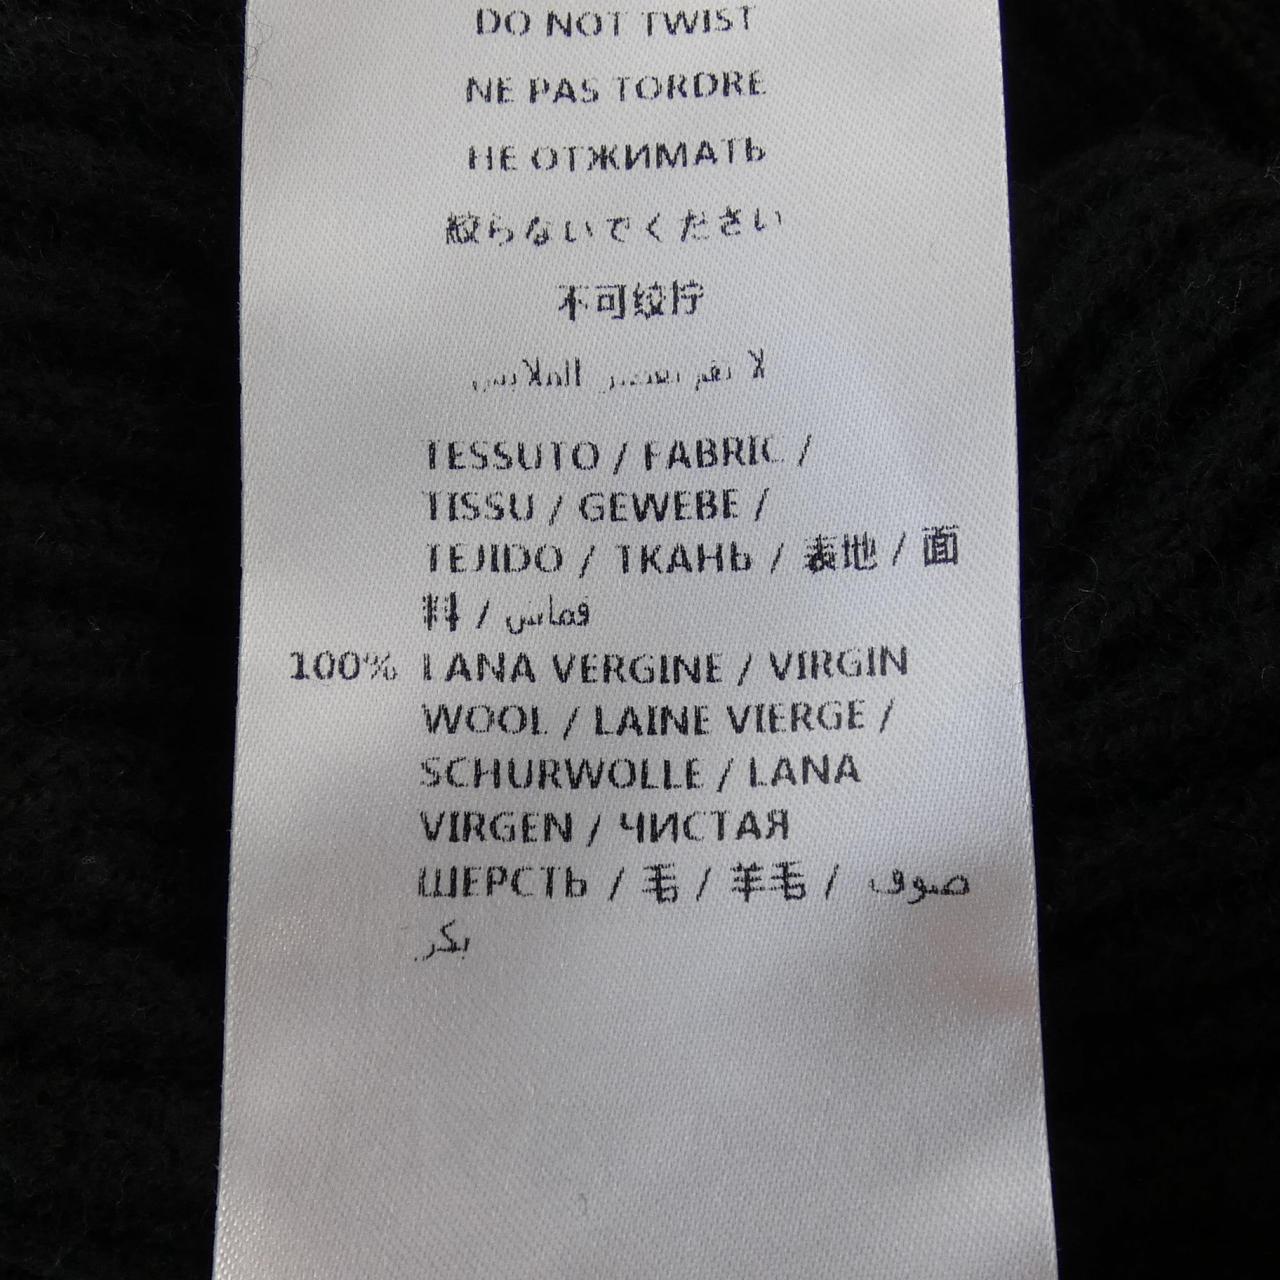 DO NOT TWIST
NE PAS TORDRE
НЕ ОТЖИМАТЬ
絞らないでください
不可绞拧
لا تقم بعصر الملابس
TESSUTO / FABRIC /
TISSU / GEWEBE /
TEJIDO / ТКАНЬ / 表地 / 面
料 / قماش
100% LANA VERGINE / VIRGIN
WOOL / LAINE VIERGE /
SCHURWOLLE / LANA
VIRGEN / ЧИСТАЯ
ШЕРСТЬ / 毛 / 羊毛 / صوف
بكر